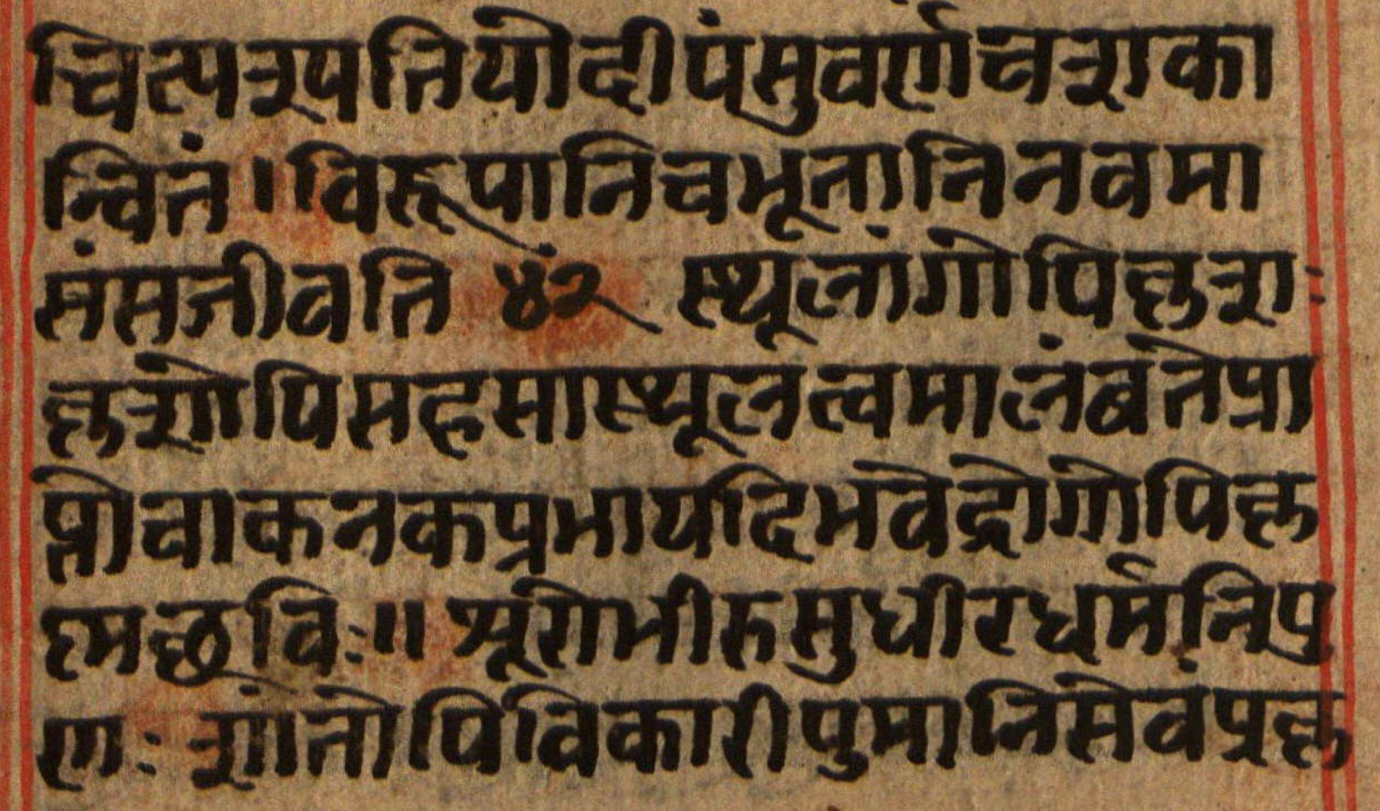 च्चित्पश्यतियोदीपंसुवर्णचशाका
न्वितं । विरूपानिचभूतानिनवमा
संसजीवति ४२ स्थूलांगोपिकृशः
कृशोपिसहसास्थूलत्वमालंबतेप्रा
प्तोवाकनकप्रभायदिभवेद्गोगोपिकृ
ष्मछविः॥ शूरोभीरुसुधीरधर्मनिपु
णः शांतोपिविकारीपुमानिसेवंप्रकृ